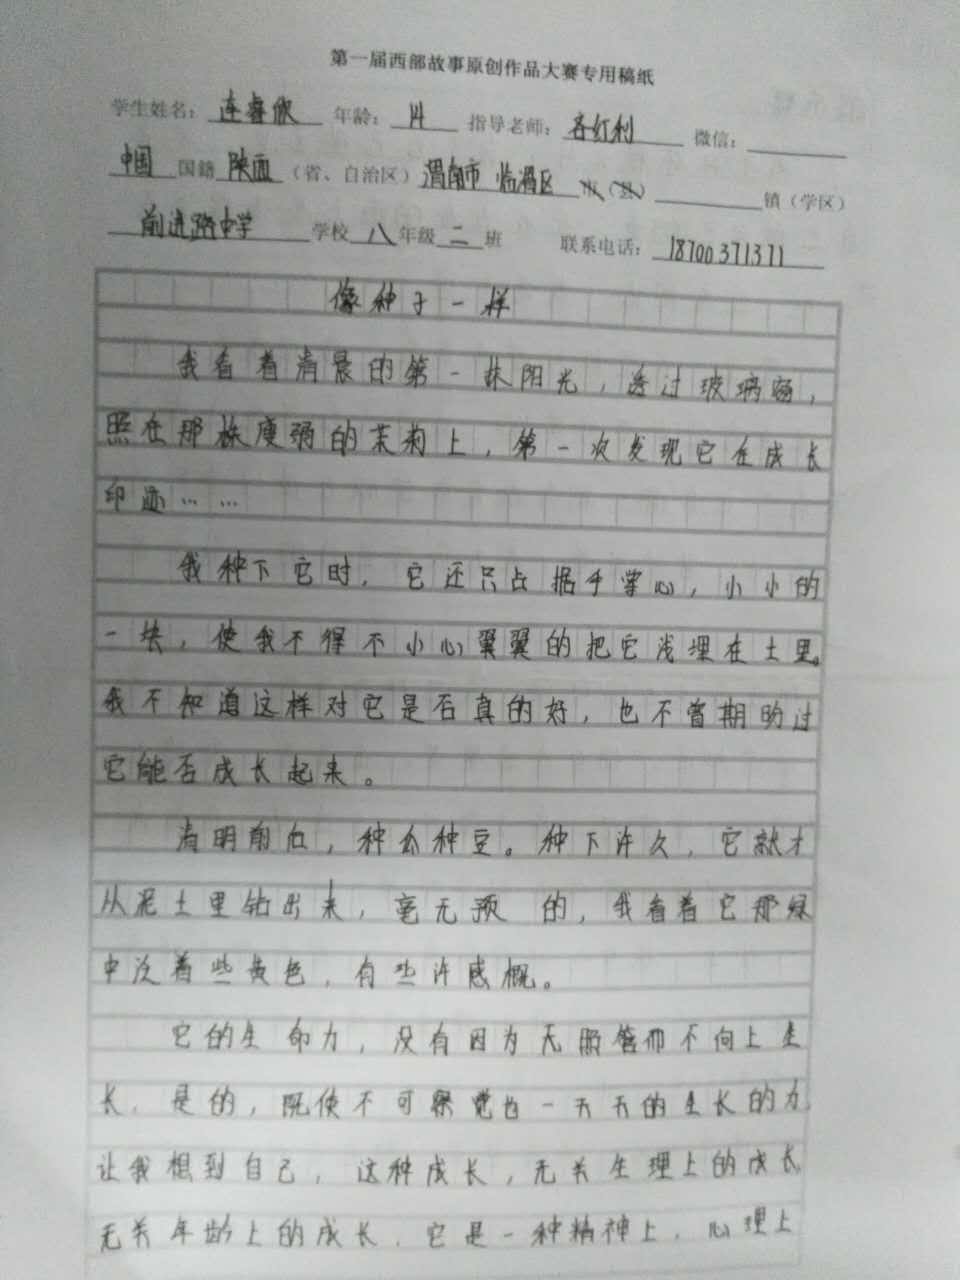 第一届西部故事原创作品大赛专用稿纸
学生姓名：连睿欣 年龄：14 指导老师：齐红利 微信：
中国国籍陕西（省、自治区）渭南市 临渭区 镇（学区）
前进路中学学校八年级二班 联系电话：18700371371
像种子一样
我看着清晨的第一抹阳光，透过玻璃窗，
照在那株瘦弱的茉莉上，第一次发现它在成长
印迹……
我种下它时，它还只占据手掌心，小小的
一块，使我不得不小心翼翼的把它浅埋在土里。
我不知道这样对它是否真的好，也不曾期盼过
它能否成长起来。
清明前后，种瓜种豆。种下许久，它就才
从泥土里钻出来，毫无预 的，我看着它那绿
中泛着些黄色，有些许感概。
它的生命力，没有因为无照管而不向上生
长，是的，既使不可察觉也一天天的生长的力
让我想到自己，这种成长，无关生理上的成长
无关年龄上的成长，它是一种精神上，心理上